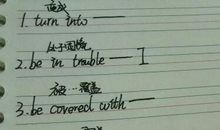 变成
1. turn into ——
处于困境
2. be in trouble ——
被…覆盖
3. be covered with ——